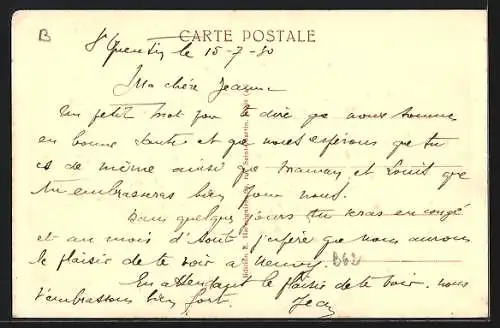 B
CARTE POSTALE
St Quentin le 15-7-30
Ma chère Jeanne
Un petit mot pour te dire que nous sommes
en bonne santé et que nous espérons que tu
es de même ainsi que maman et Louis que
tu embrasseras bien pour nous.
Dans quelques jours tu seras en congé
et au mois d'Août j'espère que nous aurons
le plaisir de te voir a
B62
En attendant le plaisir de te voir. nous
t'embrassons bien fort. Jean